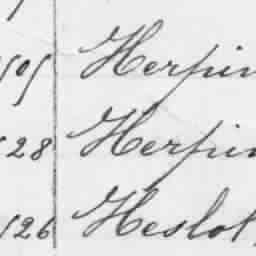 505 Herpin
528 Herpin
526 Heslot